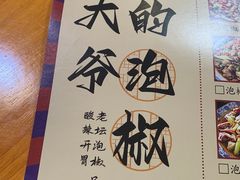 大的
爷泡
椒
老坛泡椒
酸辣开胃
泡